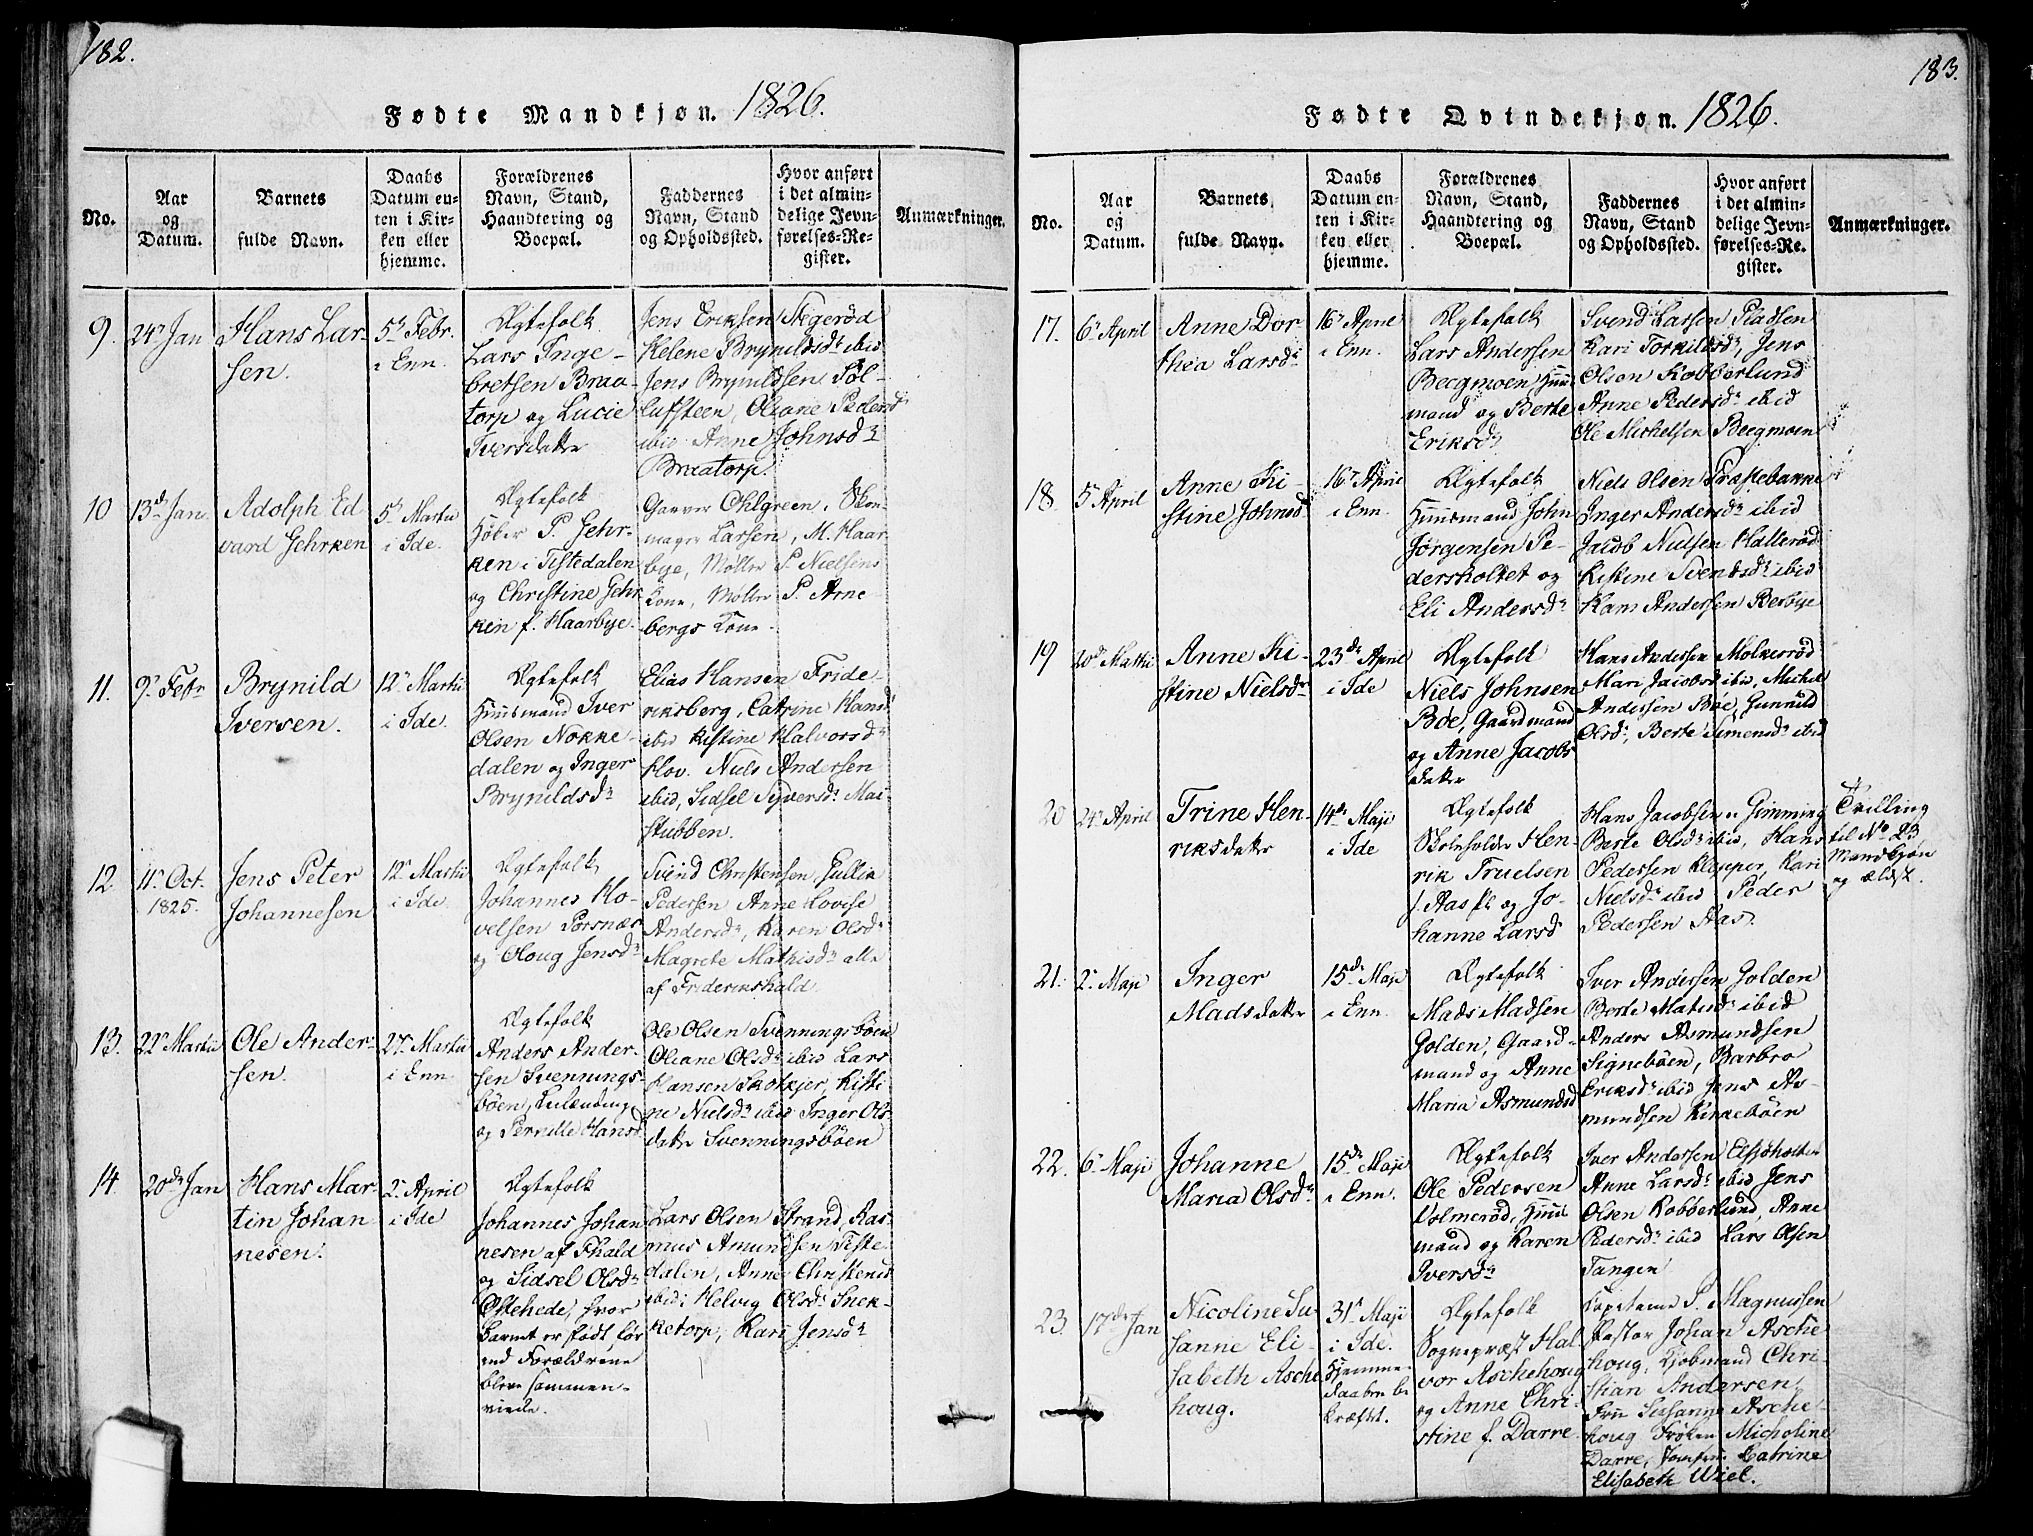 182.
Fødte Mandkjøn. 1826.
No.
Aar
og
Datum.
Barnets
fulde Navn.
Daabs
Datum en-
ten i Kir-
ken eller
hjemme.
Forældrenes
Navn, Stand,
Haandtering og
Boepæl.
Faddernes
Navn, Stand
og Opholdssted.
Hvor anført
i det almin-
delige Jevn-
førelses-Re-
gister.
Anmærkninger.
9.
24 Jan
Hans Lar-
sen.
5 Febr.
i Enn.
Ægtefolk
Lars Inge-
bretsen Braa-
torp og Lucie
Iversdatter
Jens Eriksen Stegerød
Helene Brynildsdr ibid
Jens Brynildsen Søl-
lufsteen, Oliane Pedersdr
ibid Anne Johnsdr
Braatorp.
10
13d Jan
Adolph Ed
vard Gehrken
5 Martii
i Ide.
Ægtefolk
P. Gehr-
ken i Tistedalen
og Christine Gehr
ken f. Haarbye.
Garver Ohlgreen, Skoe-
mager Larsen, M. Haar
bye, Møller P. Nielsens
Kone, Møller P. Arne
bergs Kone.
11.
9 Febr
Brynild
Iversen.
12 Martii
i Ide.
Ægtefolk
Huusmand Iver
Olsen Nokke-
dalen og Inger
Brynildsdr
Elias Hansen Fride-
riksberg, Catrine Hansd
ibid Kistine Halvorsdr
Hov. Niels Andersen
ibid, Sidsel Syversdr Mai-
stubben.
12.
11 Oct.
1825.
Jens Peter
Johannesen
12 Martii
i Ide.
Ægtefolk
Johannes Ho-
velsen Porsnæs
og Oloug Jensdr
Svend Christensen, Gullik
Pedersen Anne Lovise
Andersdr, Karen Olsdr
Magrete Mathisdr alle
af Friderikshald.
13.
22 Martii
Ole Ander-
sen.
27 Martii
i Enn.
Ægtefolk
Anders Ander-
sen Svennings-
bøen, Leilænding
og Pernille Hansd
Ole Olsen Svenningsbøen
Oliane Olsdr ibid Lars
Hansen Skotkjer, Kisti
ne Nielsdr ibid Inger Ols
datter Svenningsbøen
14.
20de Jan
Hans Mar-
tin Johan-
nesen.
2 April
i Ide
Ægtefolk
Johannes Johan
nesen af Fhald
og Sidsel Olsdr
Østehede, hvor
Barnet er født før
end Forældrene
bleve sammen-
viede.
Lars Olsen Strand, Ras-
mus Amundsen Tiste-
dalen, Anne Christensd
ibid: Helvig Olsdr Snek-
ketorp, Kari Jensdr
183.
Fødte Qvindekjøn. 1826.
No.
Aar
og
Datum.
Barnets
fulde Navn.
Daabs
Datum en-
ten i Kir-
ken eller
hjemme.
Forældrenes
Navn, Stand,
Haandtering og
Boepæl.
Faddernes
Navn, Stand
og Opholdssted.
Hvor anført
i det almin-
delige Jevn-
førelses-Re-
gister.
Anmærkninger.
17.
6 April
Anne Dor
thea Larsdr
16 April
i Enn.
Ægtefolk
Lars Andersen
Becgmoen Huus
mand og Berte
Eriksdr
Svend Lassen Pladsen
Kari Torkildsdr, Jens
Olsen Kobberlund
Anne Pedersdr ibid
Ole Michelsen Becgmoen
18
5 April
Anne Ki-
stine Johnsd
16 April
i Enn.
Ægtefolk
Huusmand John
Jørgensen Pe-
dersholtet og
Eli Andersdr
Niels Olsen Præstebakke
Inger Andersdr ibid
Jacob Nielsen Hallerød
Kistine Svendsdr ibid
Hans Andersen Berbye
19
20d Martii
Anne Ki-
stine Nielsdr
23de April
i Ide
Ægtefolk
Niels Johnsen
Bøe, Gaardmand
og Anne Jacobs
datter
Hans Andersen Molkerød
Mari Jacobsd ibid, Michel
Andersen Bøe, Gunnild
Olsdr, Berte Simensdr ibid
20
24 April
Trine Hen
riksdatter
14de Maji
i Ide
Ægtefolk
Skoleholder Hen-
rik Truelsen
og Jo-
hanne Larsd
Hans Jacobsen Gimming
Berte Olsdr ibid, Hans
Pedersen Klepper, Kari
Nielsdr ibid Peder
Pedersen Aas.
Tvilling
til No 23
Mandkjøn
og ældst.
21.
2 Maji
Inger
Madsdatter
15de Maji
i Enn.
Ægtefolk
Mads Madsen
Golden, Gaard-
mand og Anne
Maria Asmundsd
Iver Andersen Golden
Berte Matisdr ibid
Anders Asmundsen
Signebøen, Barbro
Eriksdr ibid Jens As-
mundsen Kirkebøen
22.
6 Maji
Johanne
Maria Olsdr
15de Maji
i Enn.
Ægtefolk
Ole Pedersen
Volmerød, Huus
mand og Karen
Iversdr
Iver Andersen Elsjøholtet
Anne Larsdr ibid Jens
Olsen Kobberlund, Anne
Pedersdr ibid Lars Olsen
Tangen
23.
17de Jan
Nicoline Su
sanne Eli-
sabeth Asche
houg.
31 Maji
i Ide.
Hjemme-
daaben be
kræftet.
Ægtefolk
Sognepræst Hal-
vor Aschehoug
og Anne Chri-
stine f. Darre
Capitaine P. Magnussen
Pastor Johan Asche
houg, Kjøbmand Chri-
stian Andersen,
Frue Susanne Asche-
houg Frøken Micholine
Darre, Jomfrue Catrine
Elisabeth Wiel.